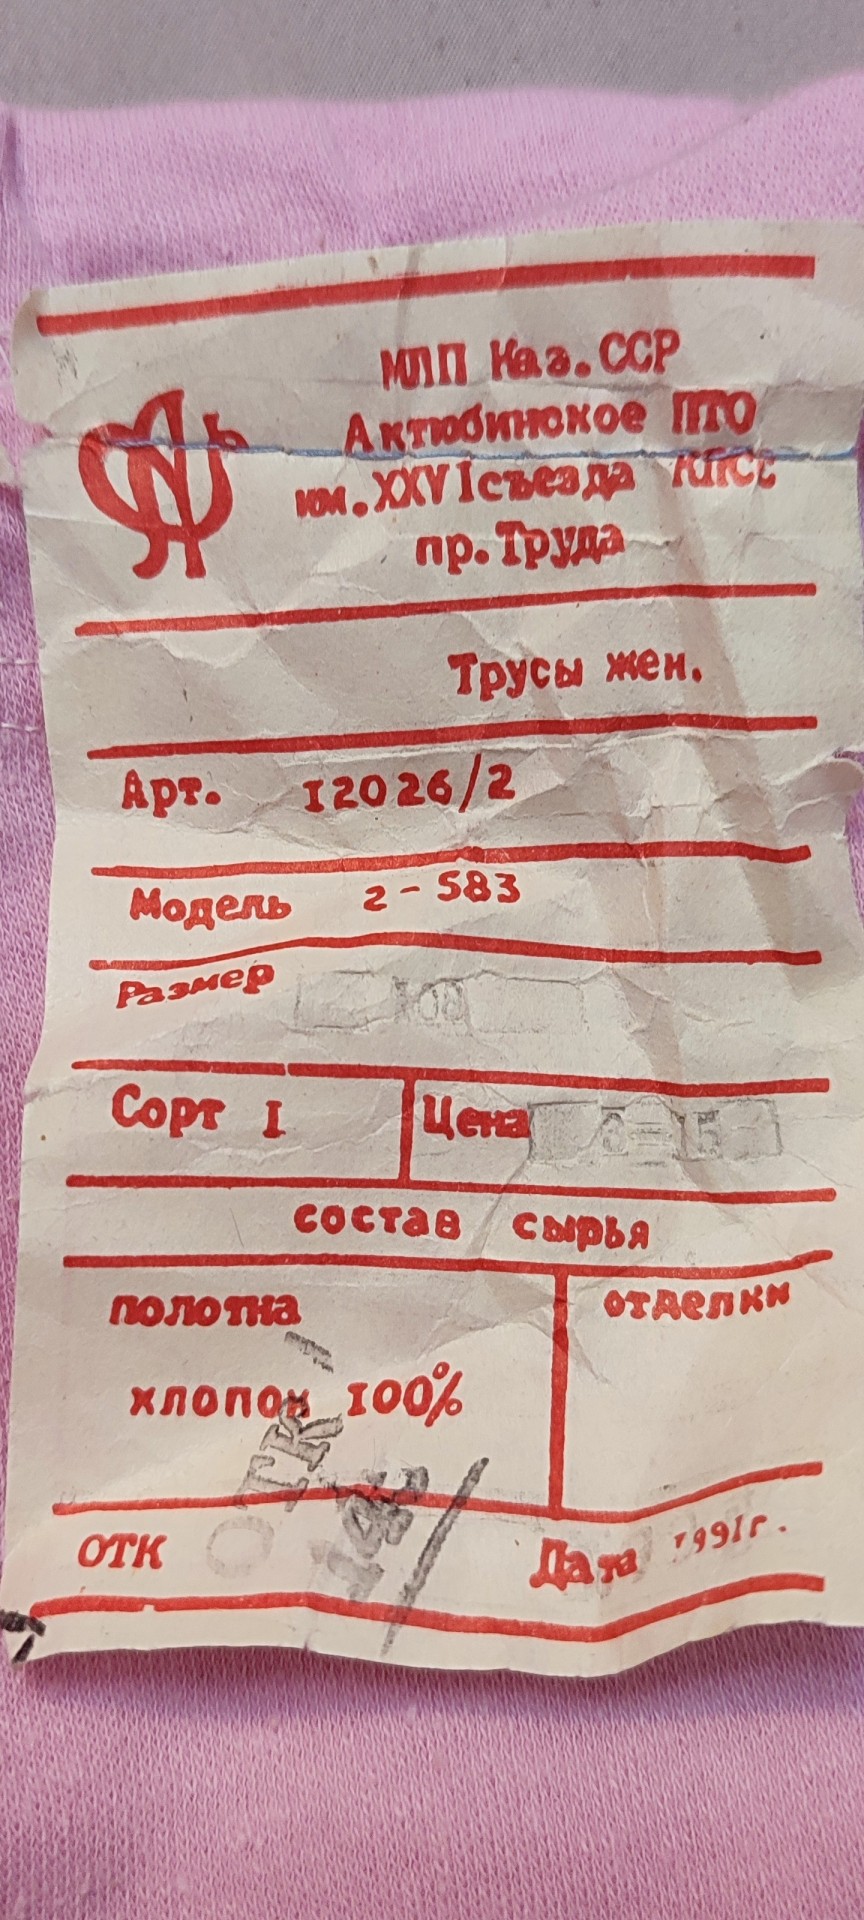 МЛП Каз.ССР
Актюбинское ПТО
им.XXVIсъезда КПСС
пр.Труда
Трусы жен.
Арт. I2026/2
Модель 2-583
Размер 108
Сорт I
Цена
состав сырья
полотна
отделки
хлопок I00%
ОТК
ОТК
Дата 1991г.